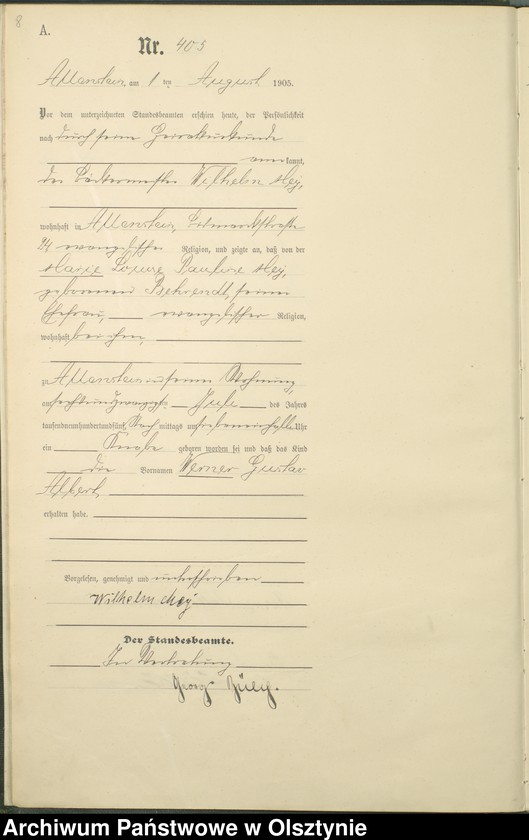 8
A.
Nr. 405
Allenstein, am 1 ten August 1905.
Vor dem unterzeichneten Standesbeamten erschien heute, der Persönlichkeit
nach durch seine Heiratsurkunde
kannt,
der Bäckermeister Wilhelm
wohnhaft in Allenstein,
24 evangelischer Religion, und zeigte an, daß von der
Marie Louise Pauline
geborenen Behrendt, seiner
Ehefrau, evangelischer Religion,
wohnhaft bei ihm,
zu Allenstein in seiner Wohnung,
am sechsundzwanzigsten Juli des Jahres
tausendneunhundertundfünf, Nachmittags um siebeneinhalb Uhr
ein Knabe geboren worden sei und daß das Kind
die Vornamen Werner Gustav
Albert
erhalten habe.
Vorgelesen, genehmigt und unterschrieben
Wilhelm
Der Standesbeamte.
In Vertretung
Georg
Archiwum Państwowe w Olsztynie